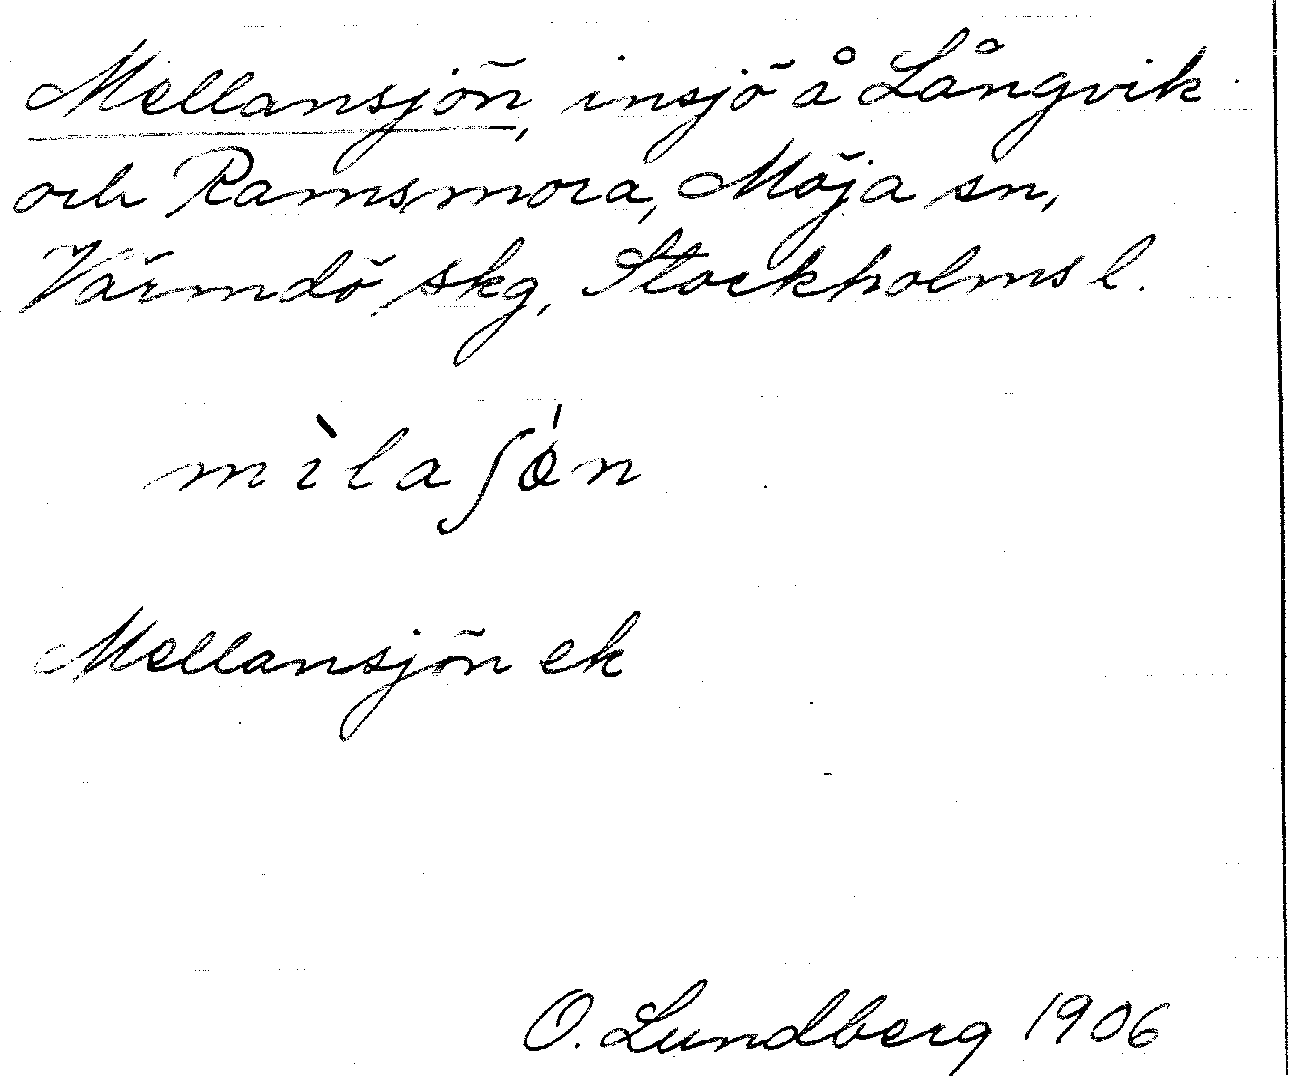 Mellansjön, insjö å Långvik
och Ramsmora, Möja sn,
Värmdö skg, Stockholms l.
mìlaʃǿn
Mellansjön ek
O. Lundberg 1906